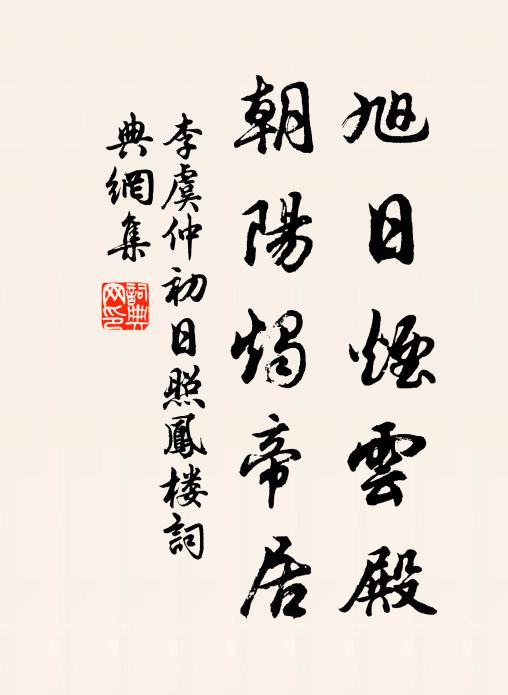 旭日煙雲殿
朝陽燭帝居
李虞仲初日照鳳楼詞
典網集
詞典网印